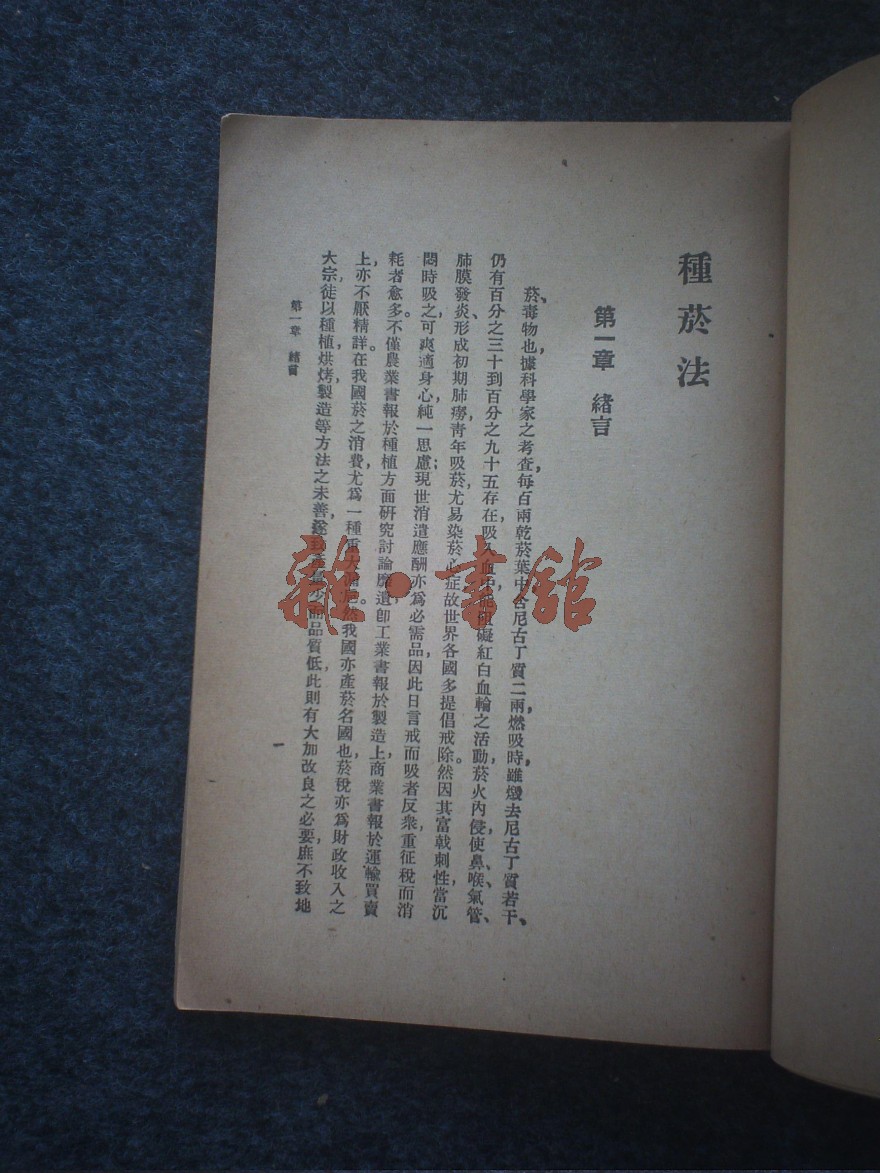 種菸法
第一章 緒言
菸、毒物也，據科學家之考查，每百兩乾菸葉中含尼古丁質二兩，燃吸時，雖燬去尼古丁質若干、
仍有百分之三十到百分之九十五存在，吸入血中，能阻礙紅白血輪之活動，菸火內侵，使鼻、喉、氣管、
肺膜發炎、形成初期肺癆，青年吸菸，尤易染菸心症，故世界各國多提倡戒除。然因其富戟刺性，當沉
悶時吸之，可爽適身心，純一思慮；現世消遣應酬，亦爲必需品，因此日言戒而吸者反衆，重征稅而消
耗者愈多。不僅農業書報於種植方面研究討論靡遺，卽工業書報於製造上，商業書報於運輸買賣
上，亦不厭精詳。在我國菸之消費，尤爲一種重大漏巵。然我國亦產菸名國也，菸稅亦爲財政收入之
大宗，徒以種植，烘烤，製造等方法之未善，遂致產量少而品質低，此則有大加改良之必要，庶不致地
第一章 緒言
一
雜·書館